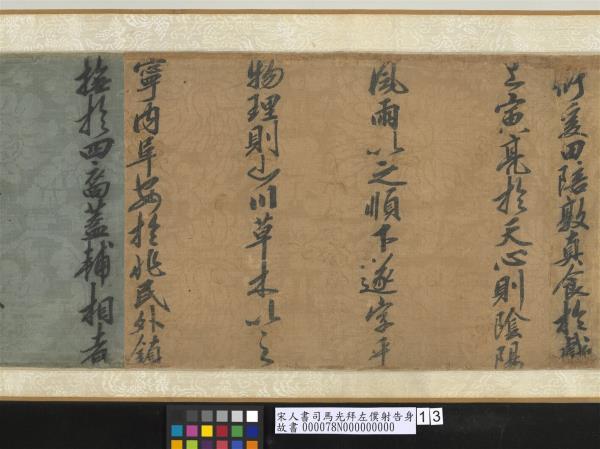 衍爰田陪敦真食於戲
上寅亮於天心則陰陽
風雨以之順下遂字平
物理則山川草木以之
寧内阜安於兆民外鎮
撫於四裔蓋輔相者
宋人書司馬光拜左僕射告身 13
故書 000078N000000000